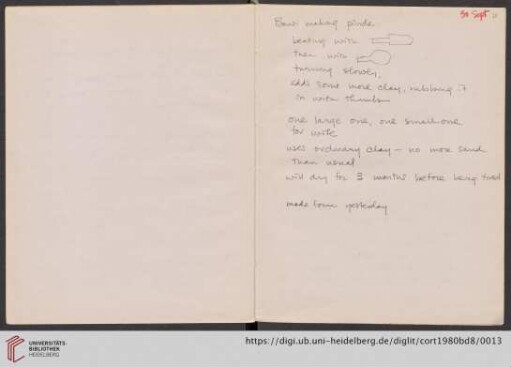 30 Sept
making pinda
beating with
then with
turning slowly,
adds some more clay, rubbing it
in with thumb
one large one, one small one
for wife
uses ordinary clay – no more sand
than usual
will dry for 3 months before being fired
made form yesterday
UNIVERSITÄTS-
BIBLIOTHEK
HEIDELBERG
https://digi.ub.uni-heidelberg.de/diglit/cort1980bd8/0013